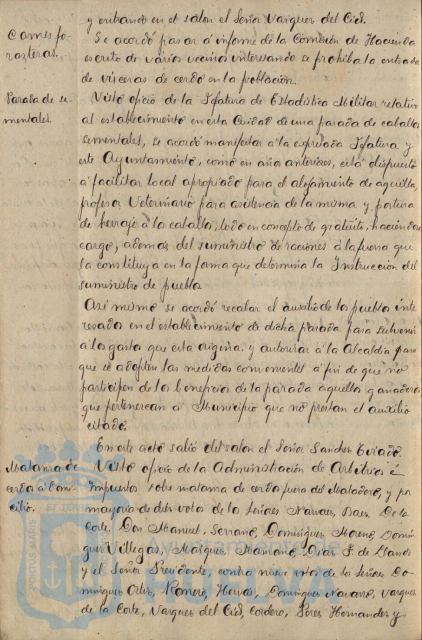 y entrando en el salon el Señor Vazquez del Cid.
Carnes fo-
rasteras.
Se acordó pasar á informe de la Comisión de Hacienda
escrito de varios vecinos interesando se prohiba la entrada
de visceras de cerdo en la población.
Parada de se-
mentales.
Visto oficio de la Jefatura de Estadistica Militar relativo
al establecimiento en esta Ciudad de una parada de caballos
sementales, se acordó manifestar á la expresada Jefatura que
este Ayuntamiento, como en años anteriores, está dispuesto
á facilitar local apropiado para el alojamiento de aquella,
profesor Veterinario para asistencia de la misma y postura
de herraje á los caballos, todo en concepto de gratuito, haciendose
cargo, ademas del suministro de raciones á la fuerza que
la constituya en la forma que determina la Instrucción del
suministro de pueblos.
Asi mismo se acordó recabar el auxilio de los pueblos inte-
resados en el establecimiento de dicha parada para subvenir
á los gastos que esta origina y autorizar á la Alcaldia para
que se adopten las medidas convenientes á fin de que no
participen de los beneficios de la parada aquellos ganaderos
que pertenezcan á Municipio que no prestan el auxilio
citado.
En este acto salió del salon el Señor Sander
Matanza de
cerdos á domi-
cilio.
Visto oficio de la Administración de Arbitrios é
impuestos sobre matanza de cerdos fuera del Matadero, y por
mayoria de diez votos de los Señores Narvaez, Baez, De la
Corte, Don Manuel, Serrano, Dominguez Moreno, Domin-
guez Villegas, Maiquez, Mariano, Diaz F. de Llanos
y el Señor Presidente, contra nueve votos de los Señores Do-
minguez Ortiz, Romero, Hervas, Dominguez Navarro, Vazquez
de la Corte, Vazquez del Cid, Cordero, Perez Hernandez y